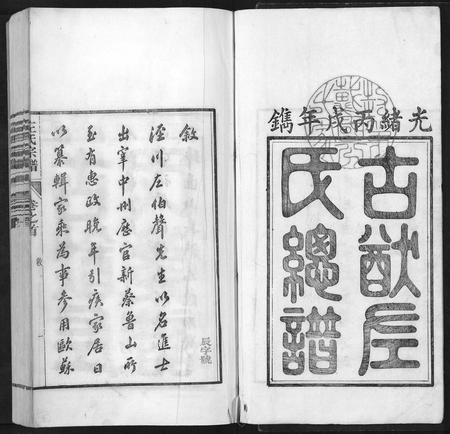 光緒丙戌年鐫
古猷左
氏總譜
敘
涇川左伯聲先生以名進士
出宰中州歷官新蔡魯山所
至有惠政晚年引疾家居日
以纂輯家乘為事參用歐蘇
辰字號
左氏宗譜
卷之首
敘